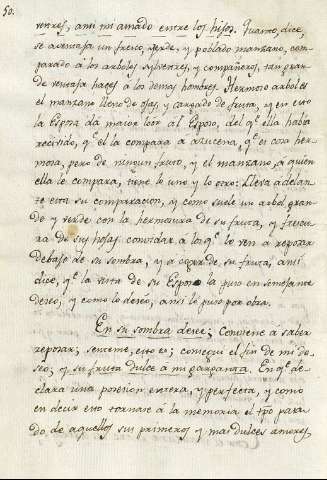 50.
vestres, ansi mi amado entre los hijos. Quanto, dice,
se aventaja un fresco, verde, y poblado manzano, com-
parado á los arboles sylvestres, y compañeros, tan gran-
de ventaja haces á los demas hombres. Hermoso arbol es
el manzano lleno de ojas, y cargado de fruta, y en esto
la Esposa dá maior loor al Esposo, del q.e ella habia
recivido, q.e el la compara a azucena, q.e es cosa her-
mosa, pero de ningun fruto, y el manzano, a quien
ella le compara, tiene lo uno y lo otro: Lleva adelan-
te esta su comparacion, y como suele un arbol gran-
de y verde con la hermosura de su fruta, y frescu-
ra de sus hojas convidar á los q.e lo ven a reposar
debajo de su sombra, y a coger de su fruta, ansi
dice, q.e la vista de su Esposo la puso en semejante
deseo, y como lo deseo, ansi lo puso por obra.
En su sombra desee; Conviene a saber
reposar; senteme, esto es; consegui el fin de mi de-
seo; y su fruta dulce a mi garganta. En q.e de-
clara una posesion entera, y perfecta, y como
en decir esto tornase á la memoria el tpõ pasa-
do de aquellos sus primeros y mas dulces amores